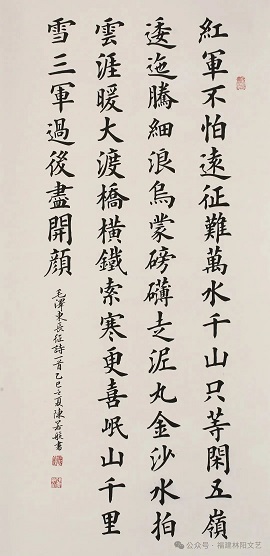 紅軍不怕遠征難萬水千山只等閑五嶺
逶迤騰細浪烏蒙磅礴走泥丸金沙水拍
雲涯暖大渡橋橫鐵索寒更喜岷山千里
雪三軍過後盡開顏
毛澤東長征詩一首乙巳夏陳若書
公众号·福建林阳文艺